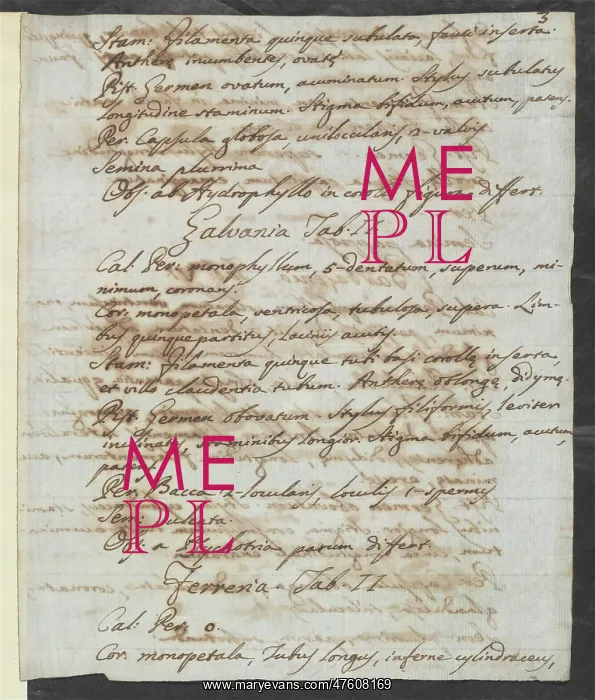 3
Stam: Filamenta quinque subulata, fauci inserta.
Antherę incumbentes, ovatę
Pist. Germen ovatum, acuminatum. Stylus subulatus
longitudine staminum. Stigma bifidum, acutum, patens.
Per. Capsula globosa, unilocularis, 2-valvis
Semina plurima
Obs. ab Hydrophyllo in corollę figura differt.
Galvania Tab. II
Cal. Per: monophyllum, 5-dentatum, superum, mi-
nimum, coronans.
Cor. monopetala, ventricosa, tubulosa, supera. Lim-
bus quinquepartitus, laciniis acutis.
Stam: Filamenta quinque tubi basi corollę inserta,
et villo claudentia tubum. Antherę oblongę, didymę.
Pist. Germen obovatum Stylus filiformis, leviter
inclinatus, longior. Stigma bifidum, acutum,
patens
Per. Bacca 2-locularis, loculis 1-spermis
Sem: sulcata.
Obs. a parum differt.
Ferreria Tab. II
Cal: Per: 0.
Cor. monopetala, Tubus longus, inferne cylindraceus,
ME
PL
ME
PL
www.maryevans.com/47608169